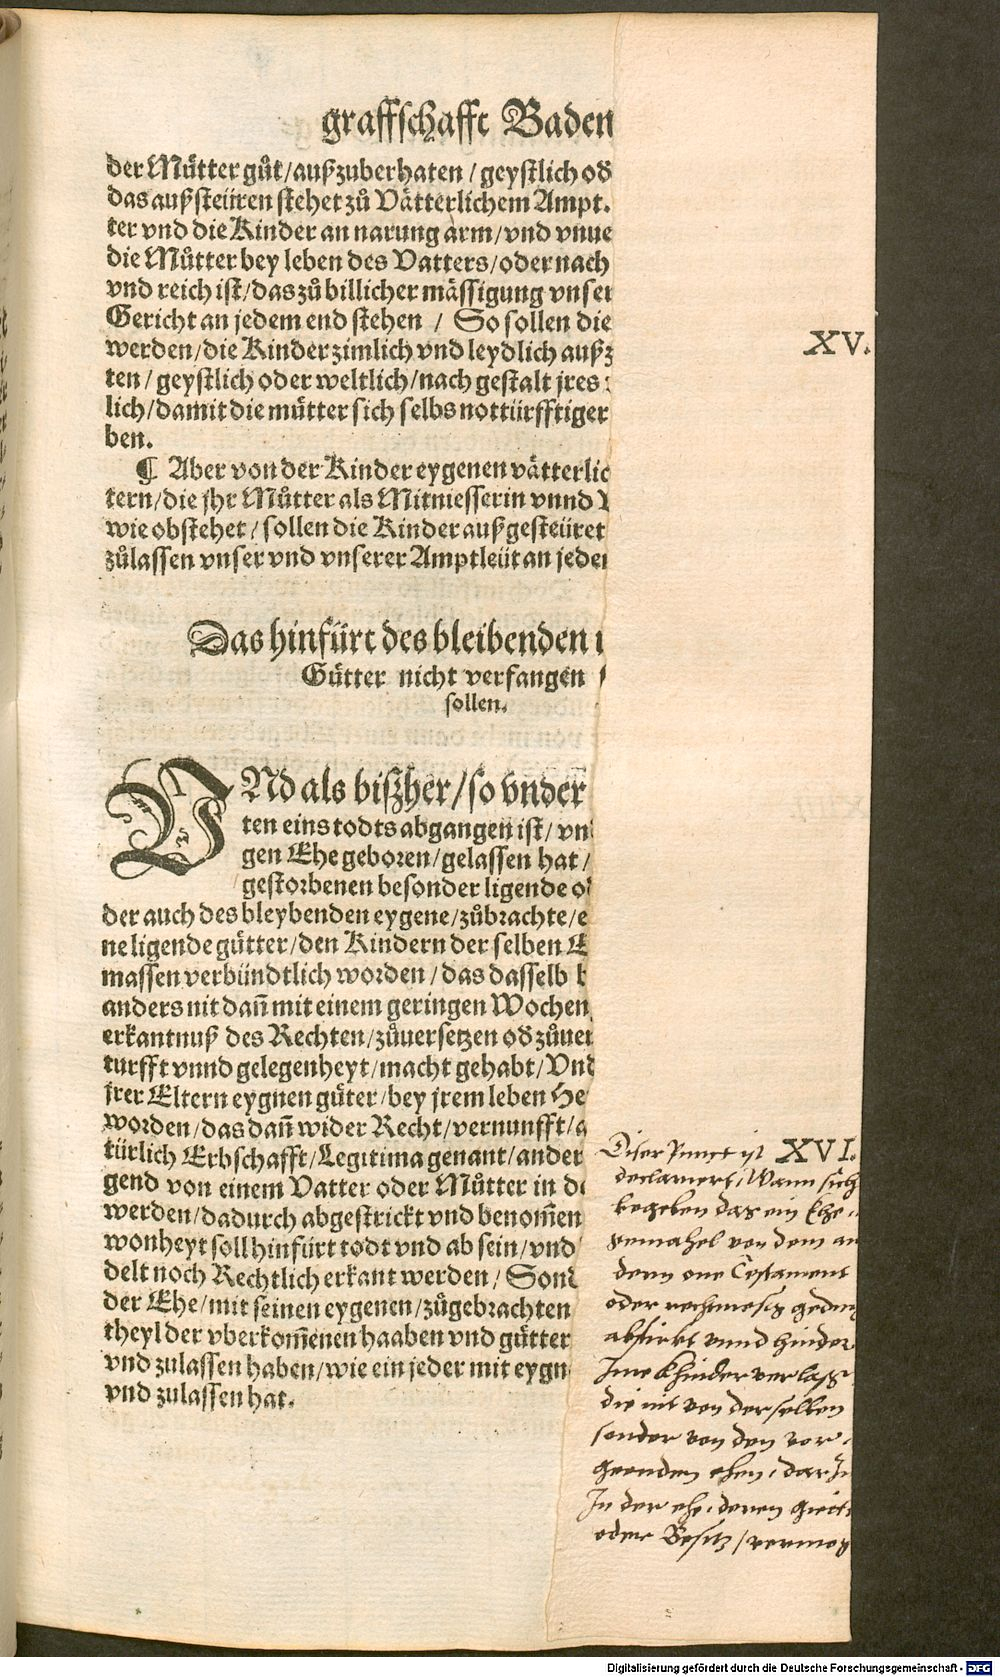 graffschafft Baden
der Můtter gůt/außzuberhaten/geystlich od
das außsteüren stehet zů Vätterlichem Ampt.
ter vnd die Kinder an narung arm/vnd vnue
die Můtter bey leben des Vatters/oder nach
vnd reich ist/das zů billicher mässigung vnser
Gericht an jedem end stehen / So sollen die
werden/die Kinder zimlich vnd leydlich außz
XV.
ten/geystlich oder weltlich/nach gestalt jres
lich/damit die můtter sich selbs nottürfftiger
ben.
¶ Aber von der Kinder eygenen vätterlic
tern/die jhr Můtter als Mitniesserin vnnd
wie obstehet/sollen die Kinder außgesteüret
zůlassen vnser vnd vnserer Amptleüt an jeder
Das hinfürt des bleibenden
Gütter nicht verfangen
sollen.
VNd als bißher/so vnder
ten eins todts abgangen ist/vn
gen Ehe geboren/gelassen hat/
gestorbenen besonder ligende o
der auch des bleybenden eygene/zůbrachte/e
ne ligende gütter/den Kindern der selben E
massen verbündtlich worden/das dasselb b
anders nit dañ mit einem geringen Wochen
erkantnuß des Rechten/zůuersetzen od zůuer
turfft vnnd gelegenheyt/macht gehabt/Vnd
jrer Eltern eygnen güter/bey jrem leben He
worden/das dañ wider Recht/vernunfft/a
türlich Erbschafft/Legitima genant/ander
gend von einem Vatter oder Můtter in d
werden/dadurch abgestrickt vnd benom̃en
wonheyt soll hinfürt todt vnd ab sein/vnd
delt noch Rechtlich erkant werden/Sond
der Ehe/mit seinen eygenen/zůgebrachten
theyl der vberkom̃enen haaben vnd gütter
vnd zulassen haben/wie ein jeder mit eygn
vnd zulassen hat.
Diser Punct ist XVI.
declariert, Wann sich
begeben das ein Ehe,
gemahel von dem an
dern one Testament
oder rechtmesig geding
abstirbt vnnd hinder
Ime Khinder verlasst
die nit von derselben
sonder von den vor,
geenden ehen, dar In
In der ehe, deren
oder Besitz/vermög
Digitalisierung gefördert durch die Deutsche Forschungsgemeinschaft - DFG